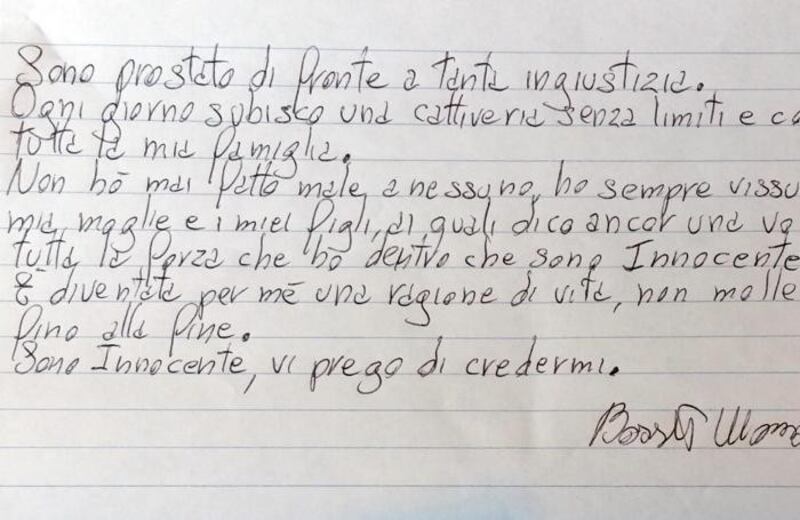 Sono prostato di fronte a tanta ingiustizia.
Ogni giorno subisko una cattiveria senza limiti e co
tutta la mia famiglia.
Non hò mai fatto male a nessuno, ho sempre vissu
mia moglie e i miei figli, ai quali dico ancor una vo
tutta la forza che hò dentro che sono Innocente
È diventata per mè una ragione di vita, non molle
fino alla fine.
Sono Innocente, vi prego di credermi.